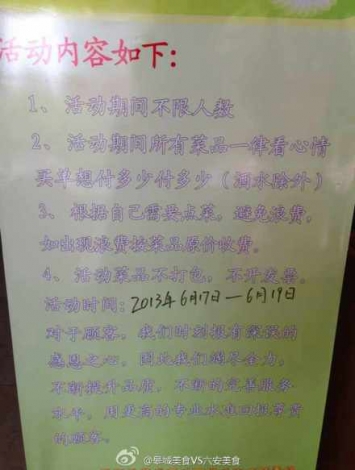 活动内容如下:
1、活动期间不限人数
2、活动期间所有菜品一律看心情
买单想付多少付多少(酒水除外)
3、根据自己需要点菜，避免浪费，
如出现浪费按菜品原价收费。
4、活动菜品不打包，不开发票。
活动时间：2013年6月17日—6月19日
对于顾客，我们时刻抱有深深的
感恩之心，因此我们竭尽全力，
不断提升品质，不断的完善服务
水平，用更高的专业水准回报尊贵
的顾客。
@皋城美食VS六安美食